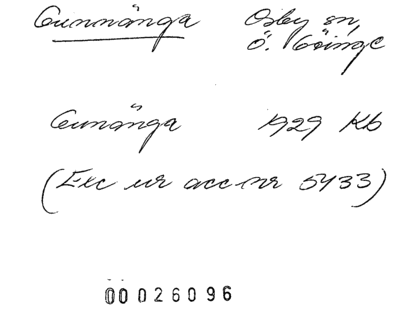 Gunnänga Osby sn,
Ö. Göinge
Gunänga 1929 Kb
(Exc ur acc nr 5433)
00026096